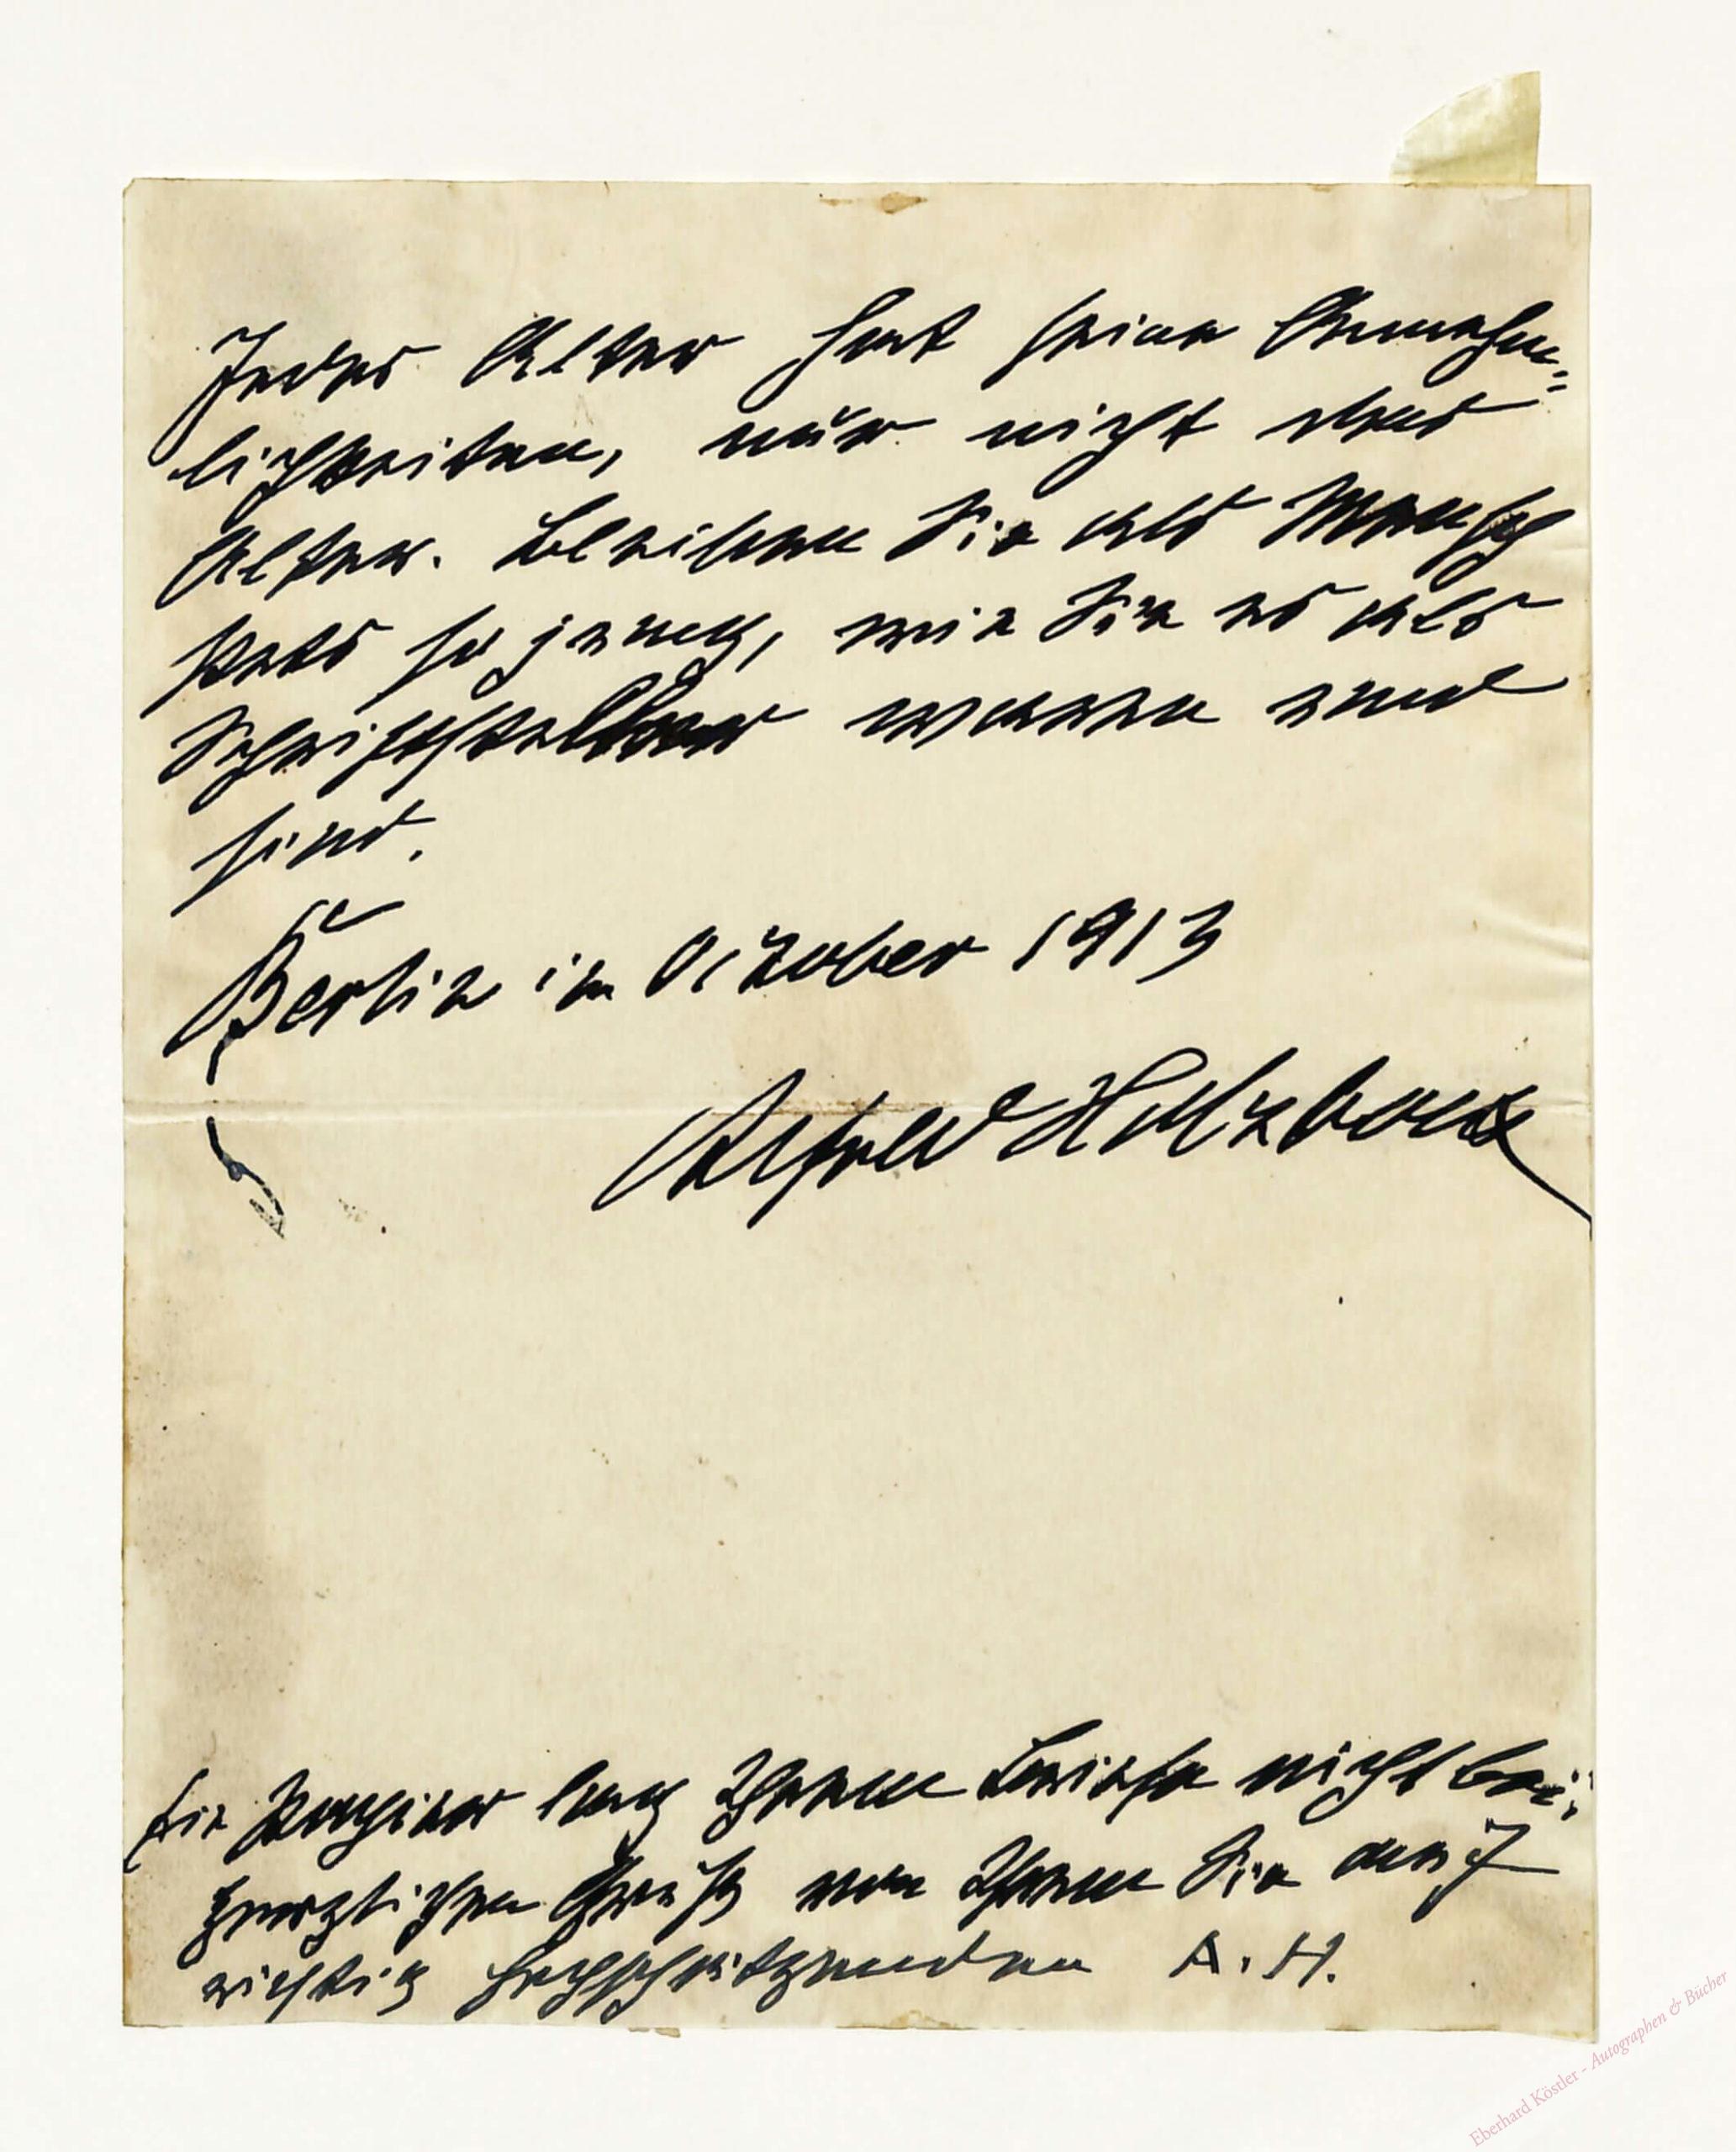 Jedes Alter hat seine Annehm=
lichkeiten, nur nicht das
Alter. Bleiben Sie als Mensch
stets so jung, wie Sie es als
Schriftsteller waren und
sind.
Berlin im October 1913
Alfred Holzbock
Ein Papier lag Ihrem Briefe nicht bei;
herzlichen Gruß von Ihrem Sie auf
richtig hochschätzenden A. H.
Eberhard Köstler - Autographen & Bücher